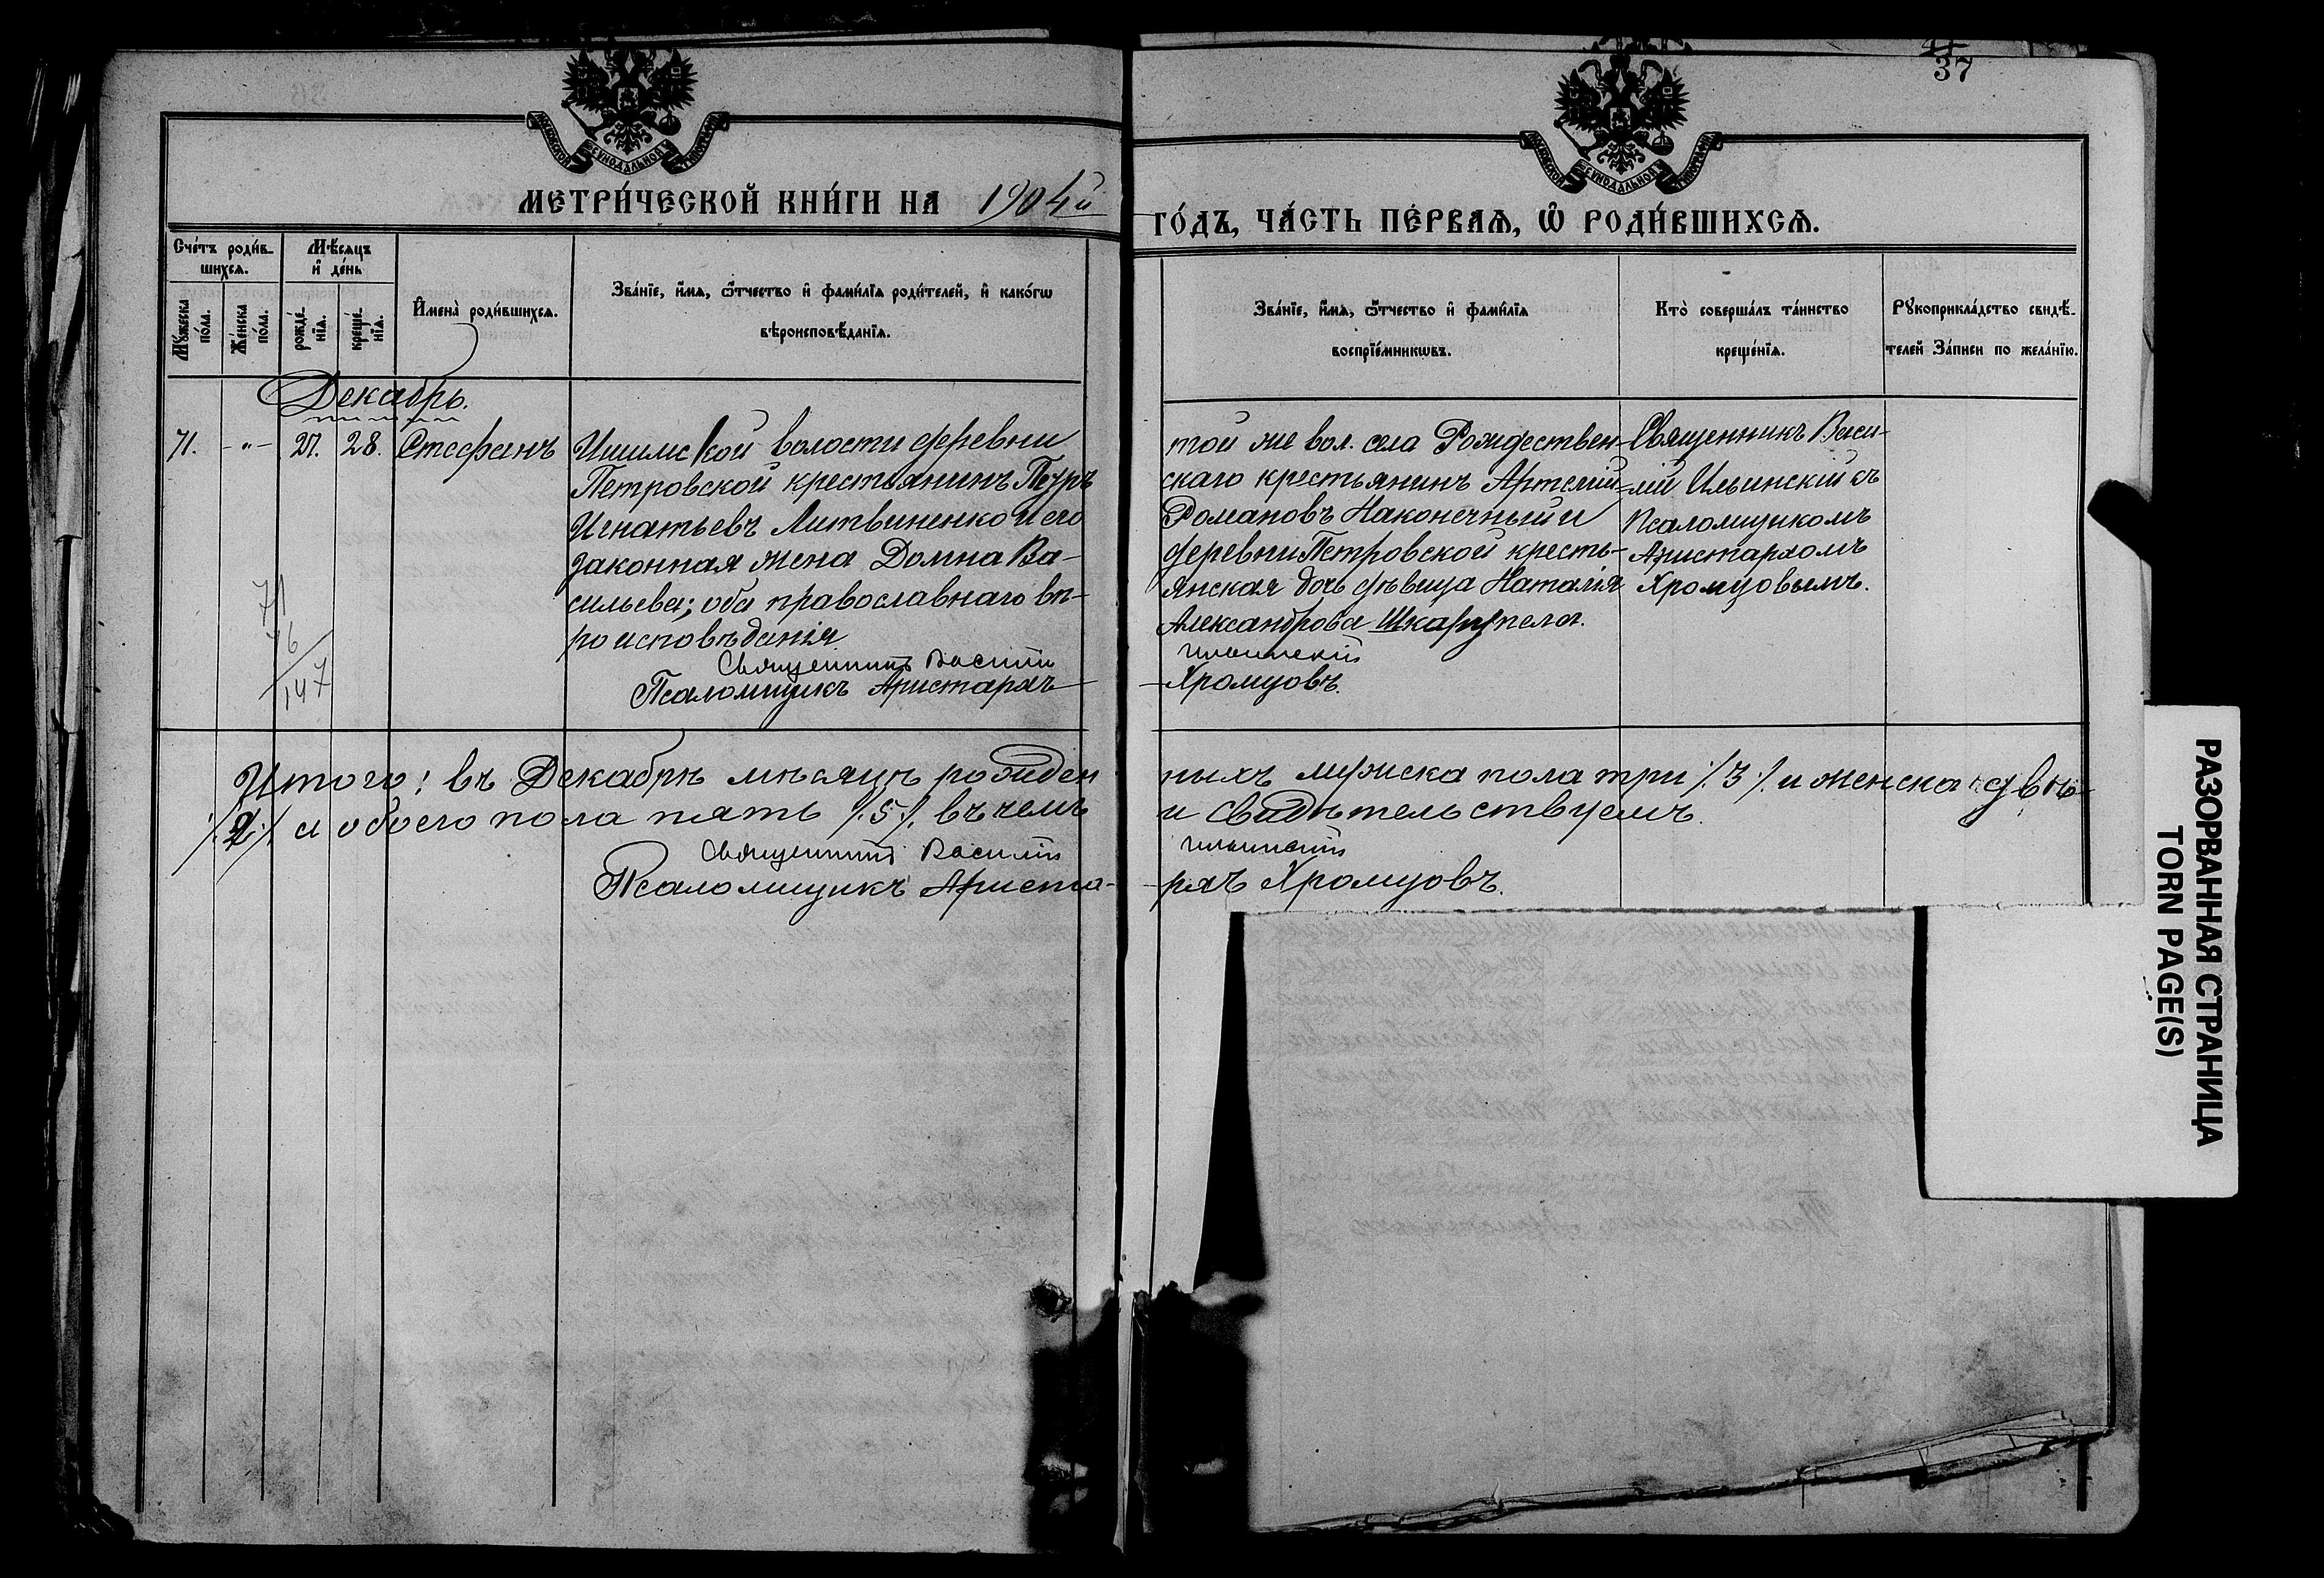 37
МОСКОВСКОЙ СѴНОДАЛЬНОЙ ТИПОГРАФІИ
МОСКОВСКОЙ СѴНОДАЛЬНОЙ ТИПОГРАФІИ
МЕТРИ́ЧЕСКОЙ КНИ́ГИ НА 1904й
ГО́ДЪ, ЧА́СТЬ ПЕ́РВАѦ, Ѽ РОДИ́ВШИХСѦ.
Сче́тъ роди́в-
шихсѧ.
Мѣ́сѧцъ
и҆ де́нь
Мꙋ́жеска
по́ла.
Же́нска
по́ла.
рожде́-
нїѧ.
креще́-
нїѧ.
И҆мена̀ роди́вшихсѧ.
Зва́нїе, и҆́мѧ, ѻ҆́тчество и҆ фами́лїѧ роди́телей, и҆ како́гѡ
вѣроисповѣ́данїѧ.
Зва́нїе, и҆́мѧ, ѻ҆́тчество и҆ фами́лїѧ
воспрїе́мникѡвъ.
Кто̀ соверша́лъ та́инство
креще́нїѧ.
Рꙋкоприкла́дство свидѣ́-
телей За́писи по жела́нїю.
Декабрь.
71. -"- 27. 28. Стефанъ
Ишимской волости деревни
Петровской крестьянинъ Петръ
Игнатьевъ Литвиненко и его
законная жена Домна Ва-
сильева; оба православнаго вѣ-
роисповѣданія.
Священникъ Василій
Псаломщикъ Аристархъ
71
76
147
той же вол. села Рождествен-
скаго крестьянинъ Артемій
Романовъ Наконечный и
деревни Петровской кресть-
янская дочь дѣвица Наталія
Александрова
Ильинскій
Хромцовъ.
Священникъ Васи-
лій Ильинскій съ
Псаломщикомъ
Аристархомъ
Хромцовымъ.
Итого: въ Декабрѣ мѣсяцѣ рожден
ныхъ мужска пола три ⁒3⁒ и женска двѣ
⁒2⁒ а обоего пола пять ⁒5⁒ въ чемъ
и свидѣтельствуемъ.
Священникъ Василій
Ильинскій
Псаломщикъ Ариста-
рхъ Хромцовъ.
РАЗОРВАННАЯ СТРАНИЦА
TORN PAGE(S)